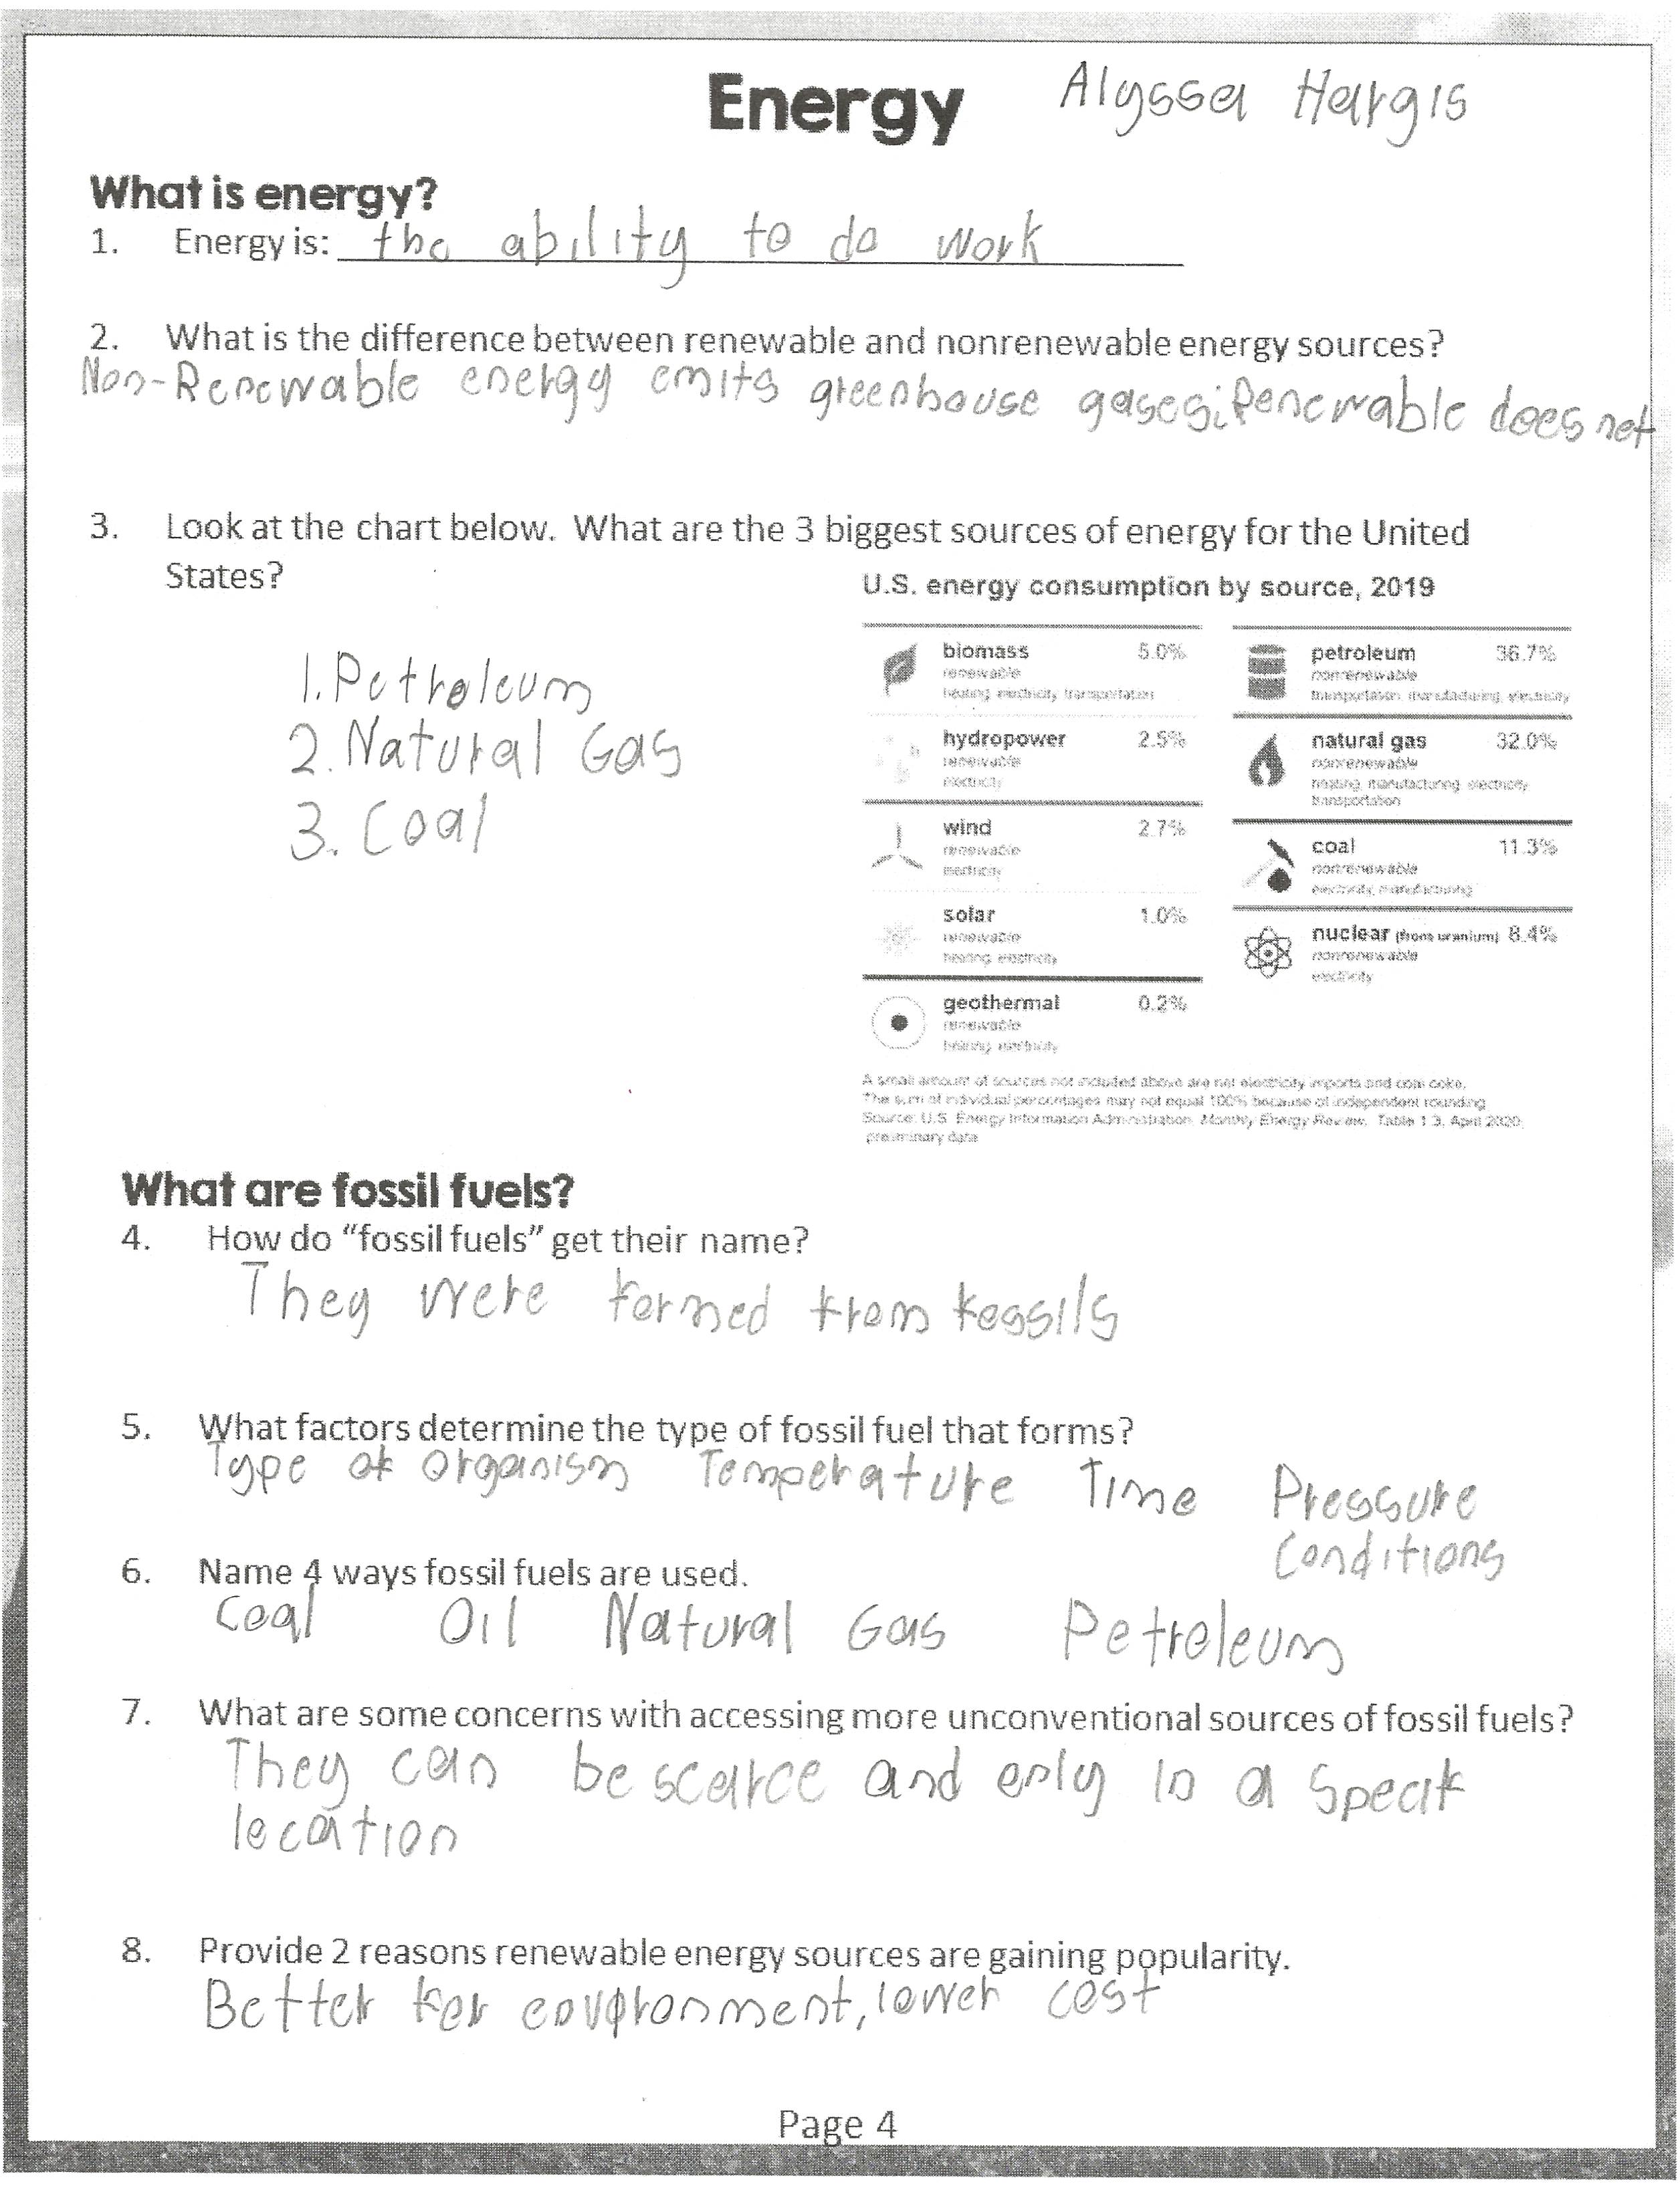 Energy Alyssa Hargis
What is energy?
1. Energy is: the ability to do work
2. What is the difference between renewable and nonrenewable energy sources?
Non-Renewable energy emits greenhouse gases; Renewable does not
3. Look at the chart below. What are the 3 biggest sources of energy for the United
States?
1. Petroleum
2. Natural Gas
3. Coal
U.S. energy consumption by source, 2019
biomass 5.0%
renewable
heating, electricity, transportation
hydropower 2.5%
renewable
electricity
wind 2.7%
renewable
electricity
solar 1.0%
renewable
heating, electricity
geothermal 0.2%
renewable
heating, electricity
petroleum 36.7%
nonrenewable
transportation, manufacturing, electricity
natural gas 32.0%
nonrenewable
heating, manufacturing, electricity
transportation
coal 11.3%
nonrenewable
electricity, manufacturing
nuclear (from uranium) 8.4%
nonrenewable
electricity
A small amount of sources not included above are net electricity imports and coal coke.
The sum of individual percentages may not equal 100% because of independent rounding
Source: U.S. Energy Information Administration, Monthly Energy Review, Table 1.3, April 2020,
preliminary data
What are fossil fuels?
4. How do “fossil fuels” get their name?
They were formed from fossils
5. What factors determine the type of fossil fuel that forms?
Type of organism Temperature Time Pressure
Conditions
6. Name 4 ways fossil fuels are used.
Coal Oil Natural Gas Petroleum
7. What are some concerns with accessing more unconventional sources of fossil fuels?
They can be scarce and only in a
location
8. Provide 2 reasons renewable energy sources are gaining popularity.
Better for enviironment, lower cost
Page 4